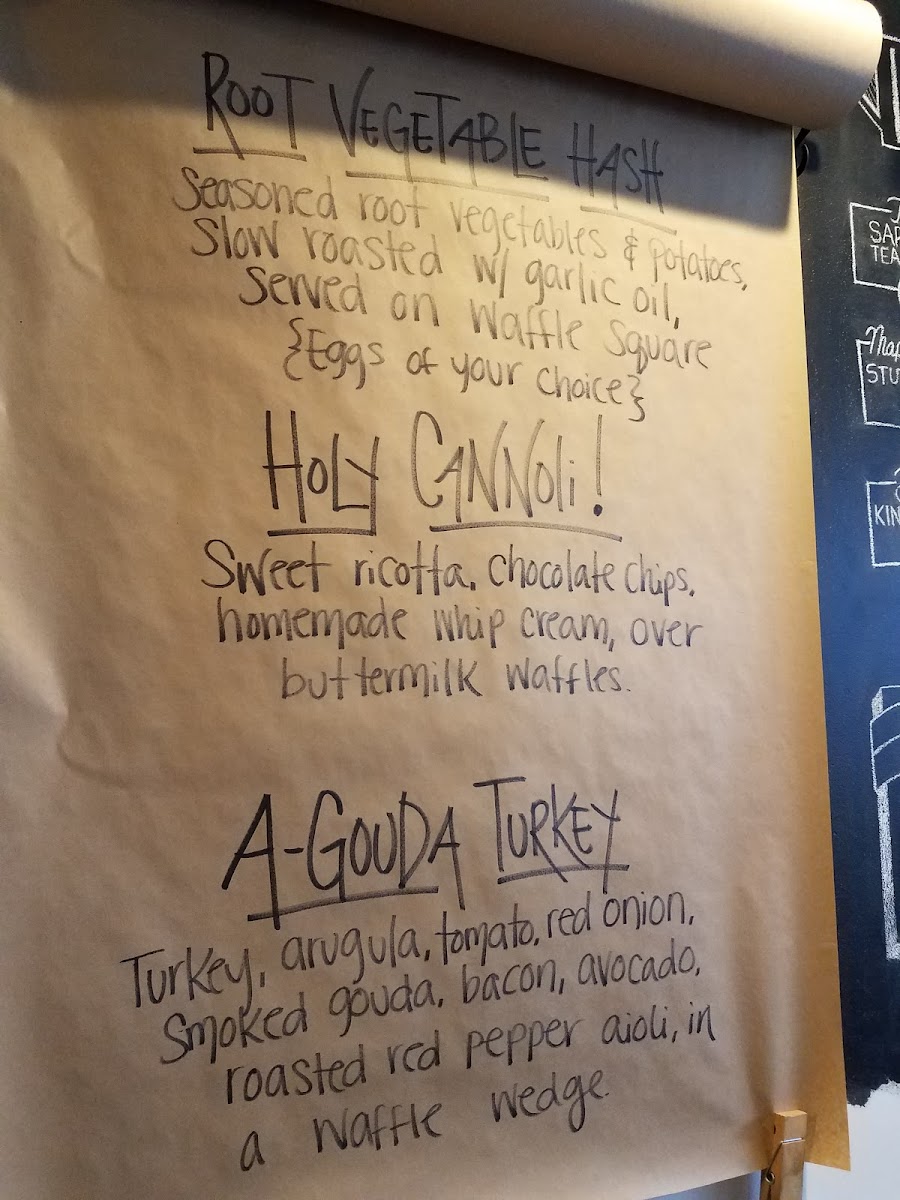 ROOT VEGETABLE HASH
Seasoned root vegetables & potatoes,
Slow roasted w/ garlic oil,
Served on Waffle Square
{Eggs of your choice}
HOLY CANNOLi!
Sweet ricotta, chocolate chips,
homemade whip cream, over
buttermilk waffles.
A-GOUDA TURKEY
Turkey, arugula, tomato, red onion,
Smoked gouda, bacon, avocado,
roasted red pepper aioli, in
a waffle wedge.